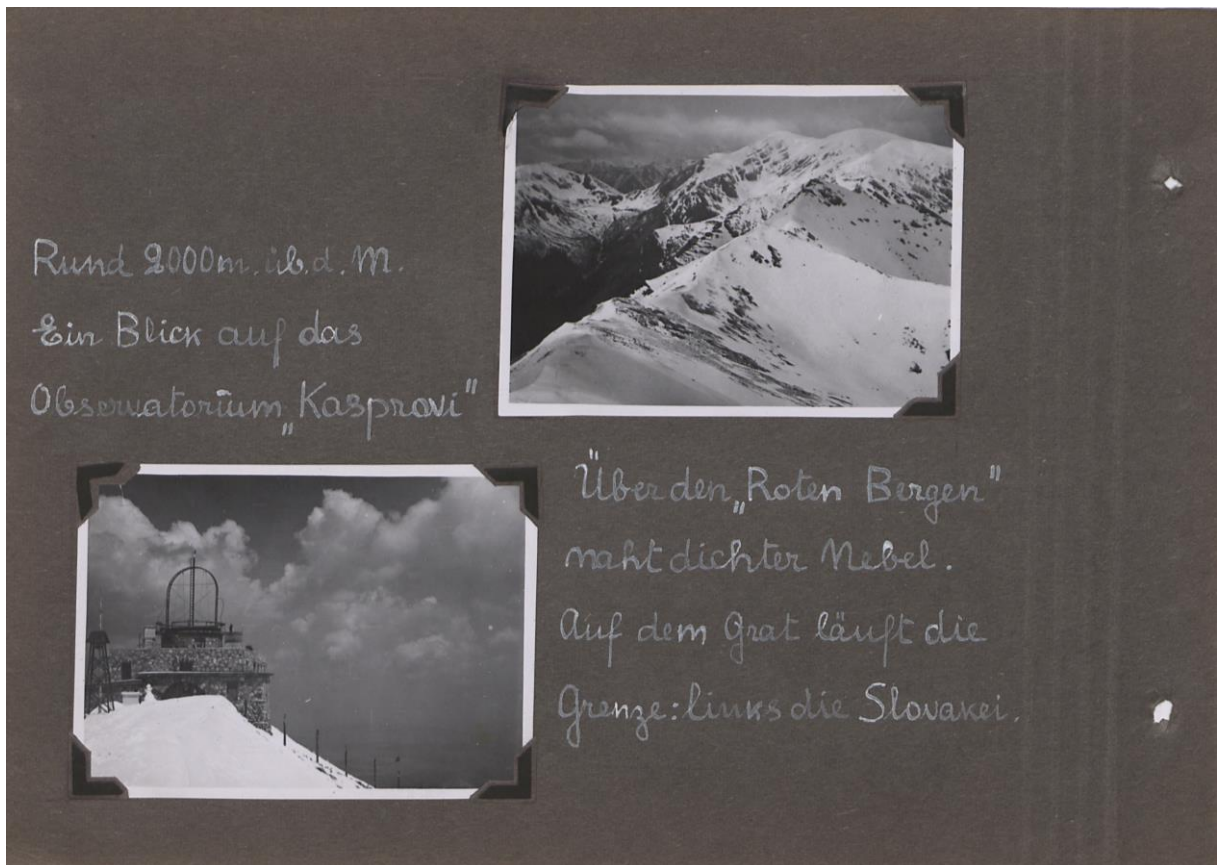 Rund 2000m. üb. d. M.
Ein Blick auf das
Observatorium „Kasprovi"
Über den „Roten Bergen"
naht dichter Nebel.
Auf dem Grat läuft die
Grenze: links die Slovakei.